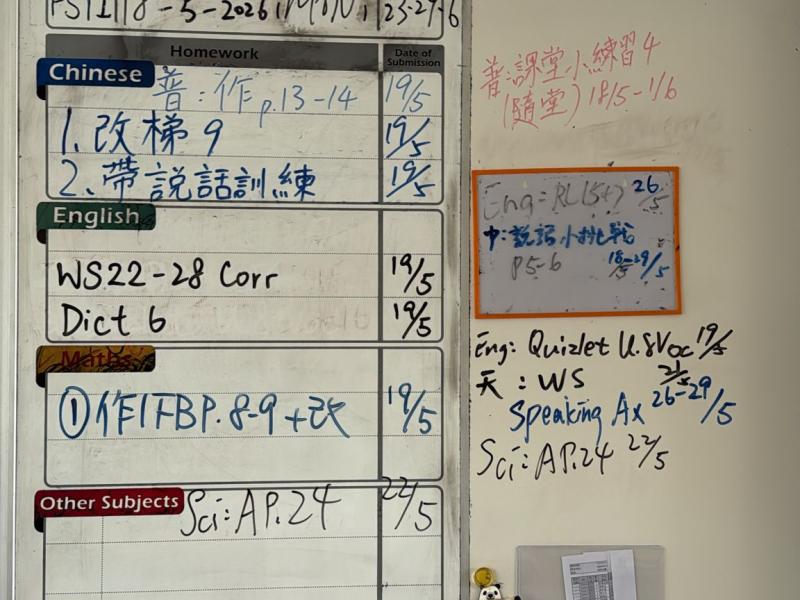 18-5-2026, MON,
Homework
Date of Submission
Chinese
普:作 p.13-14 19/5
1. 改梯9 19/5
2. 帶說話訓練 19/5
English
WS22-28 Corr 19/5
Dict 6 19/5
Maths
①作IFBP.8-9+改 19/5
Other Subjects
Sci: AP.24 22/5
普:課堂小練習4
(隨堂) 18/5-1/6
26/5
中:說話小挑戰
P5-6 18/5-29/5
Eng: Quizlet U.8Voc 19/5
天:WS
Speaking Ax 26-29/5
Sci: AP.24 22/5